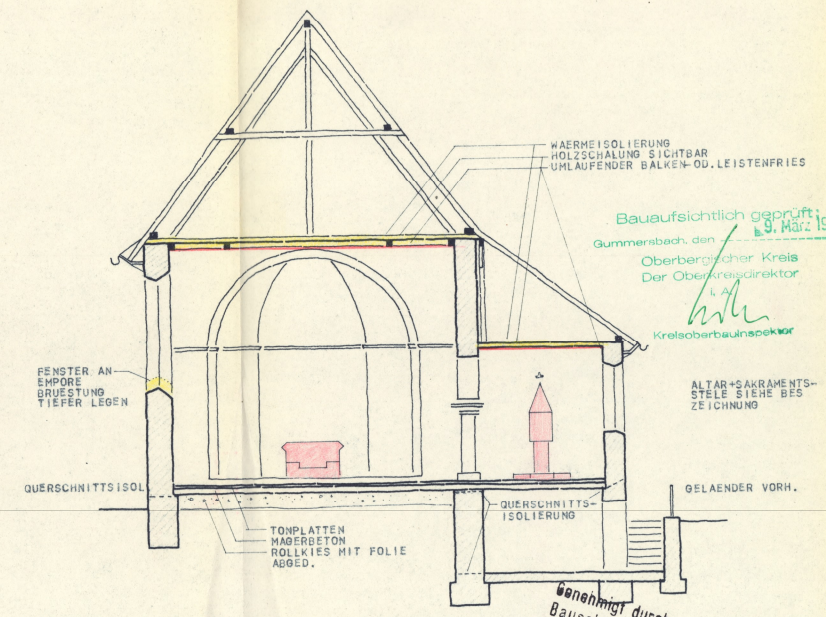 WAERMEISOLIERUNG
HOLZSCHALUNG SICHTBAR
UMLAUFENDER BALKEN-OD.LEISTENFRIES
Bauaufsichtlich geprüft:
Gummersbach, den 9. März 19
Oberbergischer Kreis
Der Oberkreisdirektor
i. A.
Kreisoberbauinspektor
FENSTER AN
EMPORE
BRUESTUNG
TIEFER LEGEN
ALTAR+SAKRAMENTS-
STELE SIEHE BES
ZEICHNUNG
QUERSCHNITTSISOL
GELAENDER VORH.
QUERSCHNITTS-
ISOLIERUNG
TONPLATTEN
MAGERBETON
ROLLKIES MIT FOLIE
ABGED.
Genehmigt durch